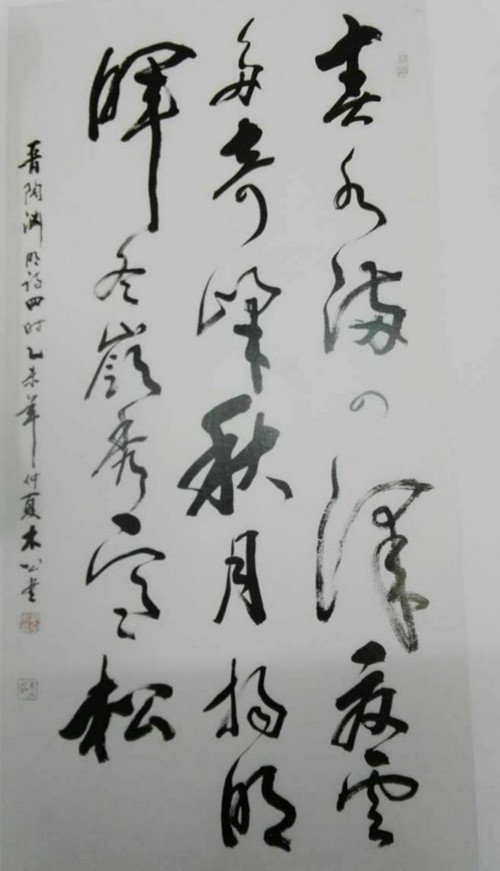 春水满四泽夏云
多奇峰秋月扬明
晖冬岭秀寒松
晋陶渊明诗四时乙未年仲夏木公书